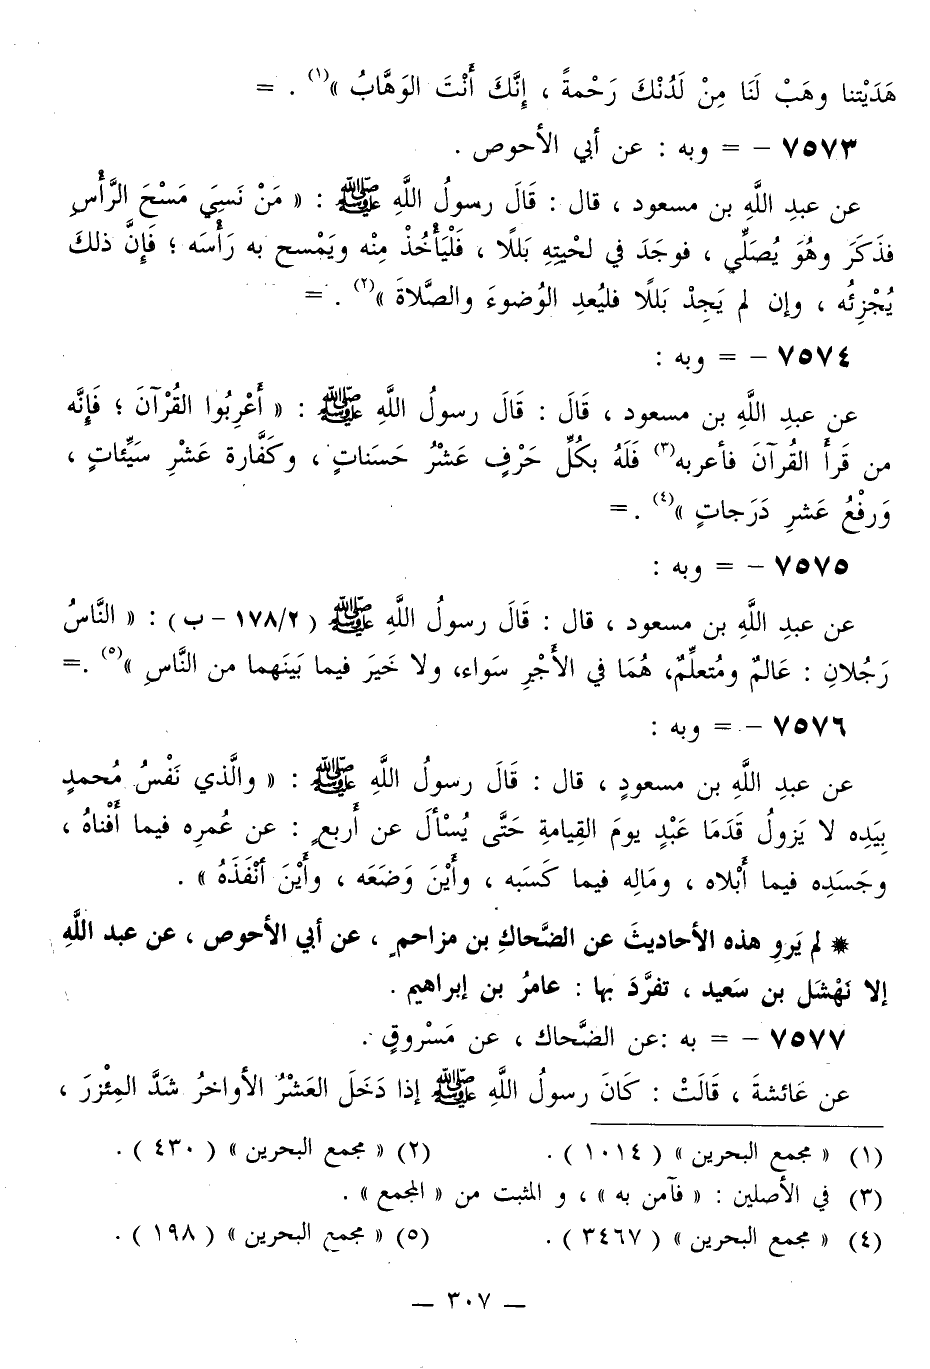 هَدَيْتنا وهَبْ لَنَا مِنْ لَدُنْكَ رَحْمةً ، إِنَّكَ أَنْتَ الوَهَّابُ »(١) . =
٧٥٧٣ – = وبه : عن أبي الأحوص .
عن عبدِ اللَّهِ بن مسعود ، قال : قَالَ رسولُ اللَّهِ ﷺ : « مَنْ نَسِيَ مَسْحَ الرَّأْسِ
فذَكَرَ وهُوَ يُصَلِّي ، فوجَدَ في لحْيتِهِ بَللًا ، فَلْيَأْخُذْ مِنْه ويَمْسح به رَأْسَه ؛ فَإِنَّ ذلكَ
يُجْزِئُه ، وإن لم يَجِدْ بَللًا فليُعدِ الوُضوءَ والصَّلاةَ »(٢) . =
٧٥٧٤ – = وبه :
عن عبدِ اللَّهِ بن مسعود ، قَالَ : قَالَ رسولُ اللَّهِ ﷺ : « أَعْرِبُوا القُرْآنَ ؛ فَإِنَّه
من قَرأَ القُرآنَ فأعربه(٣) فَلَهُ بكُلِّ حَرْفٍ عَشْرُ حَسَناتٍ ، وكَفَّارة عَشْرِ سَيِّئاتٍ ،
وَرفْعُ عَشرِ دَرَجاتٍ »(٤) . =
٧٥٧٥ – = وبه :
عن عبدِ اللَّهِ بن مسعود ، قال : قَالَ رسولُ اللَّهِ ﷺ ( ١٧٨/٢ – ب ) : « النَّاسُ
رَجُلانِ : عَالمٌ ومُتعلِّمٌ، هُمَا في الأَجْرِ سَواء، ولا خَيرَ فيما بَينَهما من النَّاسِ »(٥) .=
٧٥٧٦ – = وبه :
عن عبدِ اللَّهِ بن مسعودٍ ، قال : قَالَ رسولُ اللَّهِ ﷺ : « والَّذي نَفْسُ مُحمدٍ
بِيَدِه لا يَزولُ قَدَمَا عَبْدٍ يومَ القِيامةِ حَتَّى يُسْألَ عن أَربعٍ : عن عُمرِه فيما أَفْناهُ ،
وجَسَدِه فيما أَبْلاه ، ومَالِه فيما كَسَبه ، وأَيْنَ وَضَعَه ، وأَيْنَ أنْفَذَهُ » .
* لم يَروِ هذه الأحاديثَ عن الضَّحاكِ بن مزاحمٍ ، عن أبي الأحوص ، عن عبد اللَّهِ
إلا نَهْشَل بن سَعيد ، تفرَّدَ بها : عامرُ بن إبراهيم .
٧٥٧٧ – = به :عن الضَّحاك ، عن مَسْروقٍ .
عن عَائشةَ ، قَالَتْ : كَانَ رسولُ اللَّهِ ﷺ إذا دَخَلَ العَشْرُ الأواخرُ شَدَّ المِئْزرَ ،
(١) « مجمع البحرين » ( ١٠١٤ ) . (٢) « مجمع البحرين » ( ٤٣٠ ) .
(٣) في الأصلين : « فآمن به » ، و المثبت من « المجمع » .
(٤) « مجمع البحرين » ( ٣٤٦٧ ) . (٥) « مجمع البحرين » ( ١٩٨ ) .
— ٣٠٧ —